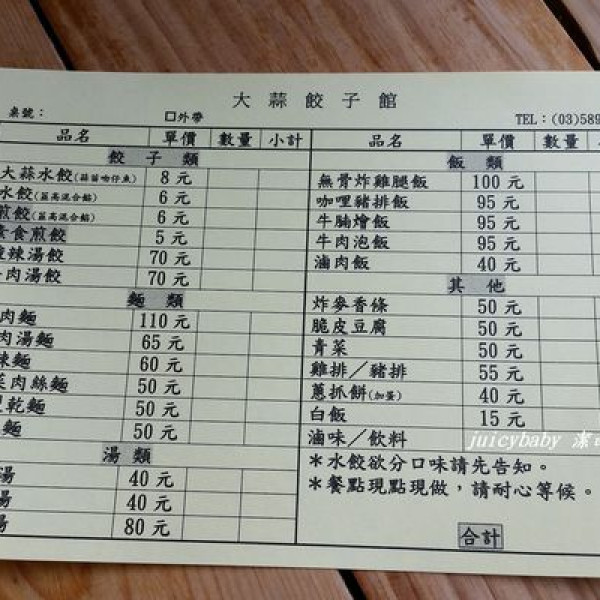 大蒜餃子館
桌號：
口外帶
TEL：(03)589
品名 單價 數量 小計
餃子類
大蒜水餃(蒜苗吻仔魚) 8元
水餃(韮高混合餡) 6元
煎餃(韮高混合餡) 6元
素食煎餃 5元
辣湯餃 70元
肉湯餃 70元
麵類
肉麵 110元
肉湯麵 65元
辣麵 60元
菜肉絲麵 50元
乾麵 50元
麵 50元
湯類
湯 40元
湯 40元
湯 80元
品名 單價 數量
飯類
無骨炸雞腿飯 100元
咖哩豬排飯 95元
牛腩燴飯 95元
牛肉泡飯 95元
滷肉飯 40元
其他
炸麥香條 50元
脆皮豆腐 50元
青菜 50元
雞排／豬排 55元
蔥抓餅(加蛋) 40元
白飯 15元
滷味／飲料
＊水餃欲分口味請先告知。
＊餐點現點現做，請耐心等候。
合計
juicybaby 潔